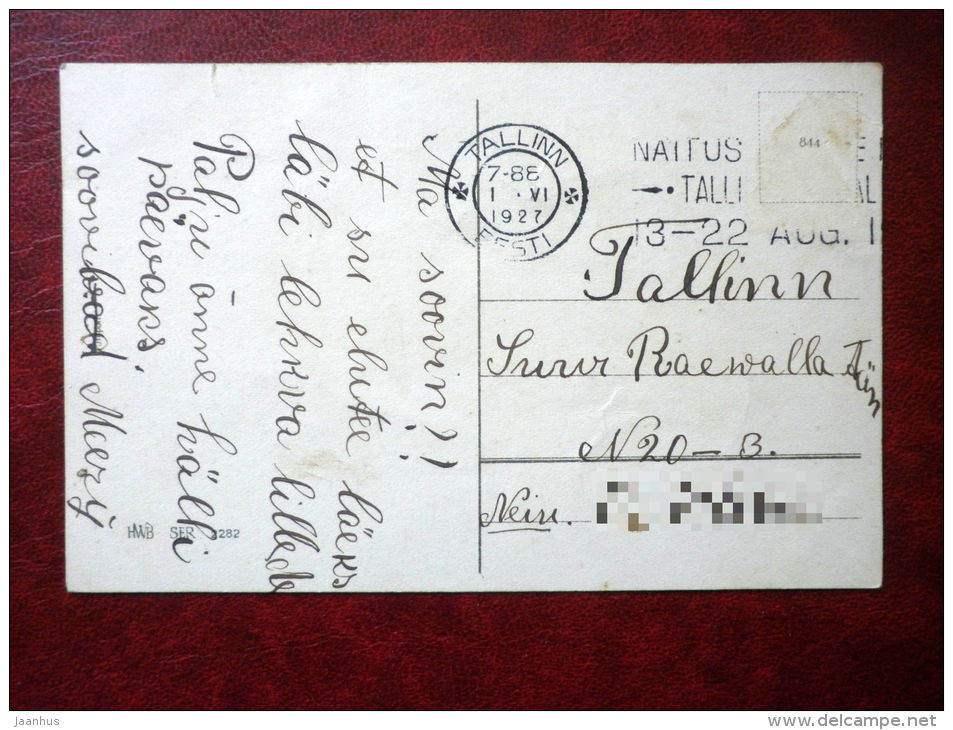 Ma soovin!!
et su elutee läeks
läbi lehkva lillede
Palju õnne hälli
päevaks.
soovib Meezy
HWB SER 3282
TALLINN
7-88
1 · VI
1927
EESTI
NÄITUS
TALLI
13-22 AUG. 1
844
Tallinn
Suur Raewalla tän
N20-3.
Neiu.
Jaanhus
www.delcampe.net